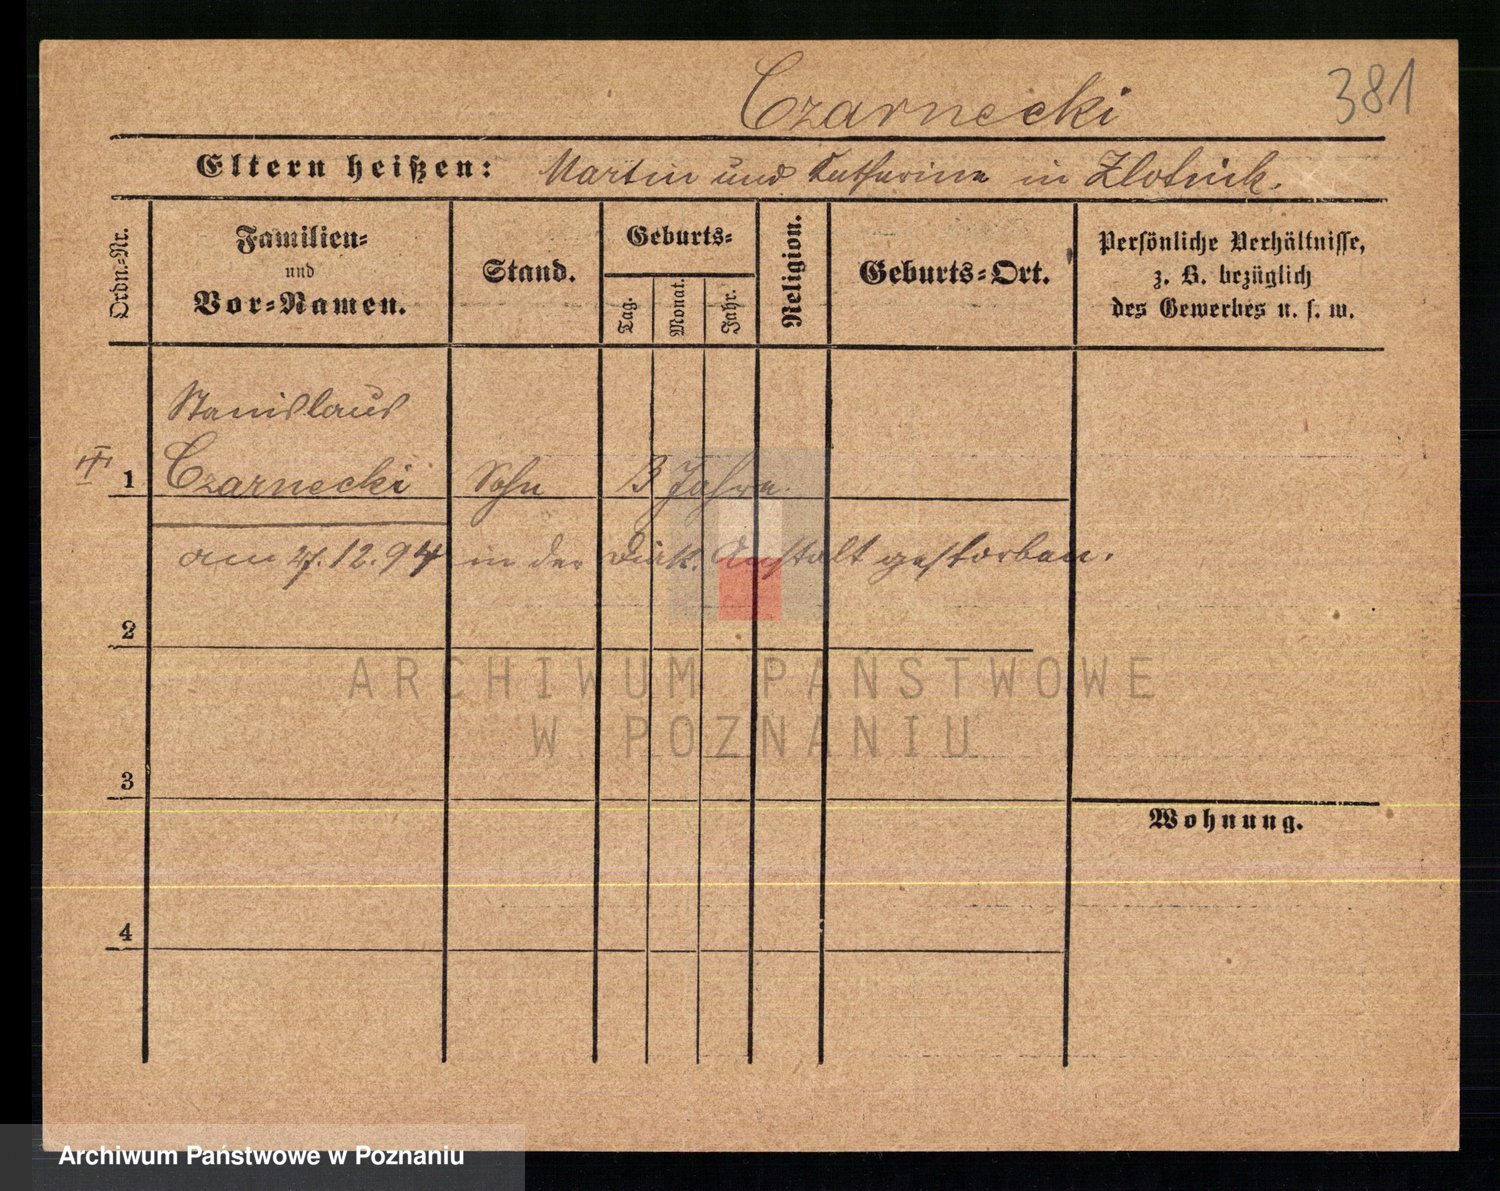 Czarnecki
381
Eltern heißen: Martin und Katharina in Zlotnik.
Ordn.-Nr.
Familien-
und
Vor-Namen.
Stand.
Geburts-
Tag.
Monat.
Jahr.
Religion.
Geburts-Ort.
Persönliche Verhältnisse,
z. B. bezüglich
des Gewerbes u. s. w.
Stanislaus
1 Czarnecki Sohn 3 Jahre.
am 27.12.94 in der Diak. Anstalt gestorben.
2
3
Wohnung.
4
ARCHIWUM PAŃSTWOWE
W POZNANIU
Archiwum Państwowe w Poznaniu